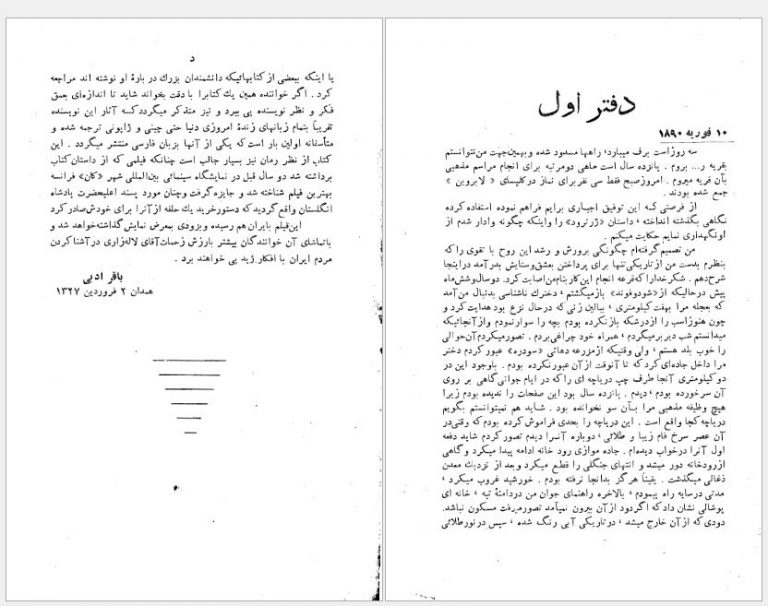 د
یا اینکه ببعضی از کتابهائیکه دانشمندان بزرك در بارهٔ او نوشته اند مراجعه
کرد . اگر خواننده همین یك کتابرا با دقت بخواند شاید تا اندازه‌ای بعمق
فکر و نظر نویسنده پی ببرد و نیز متذکر میگردد که آثار این نویسنده
تقریباً بتمام زبانهای زندهٔ امروزی دنیا حتی چینی و ژاپونی ترجمه شده و
متأسفانه اولین بار است که یکی از آنها بزبان فارسی منتشر میگردد . این
کتاب از نظر رمان نیز بسیار جالب است چنانکه فیلمی که از داستان کتاب
برداشته شد دو سال قبل در نمایشگاه سینمائی بین‌المللی شهر «کان» فرانسه
بهترین فیلم شناخته شد و جایزه گرفت وچنان مورد پسند اعلیحضرت پادشاه
انگلستان واقع گردید که دستورخرید یك حلقه از آنرا برای خودش صادر کرد
این‌فیلم بایران هم رسیده و بزودی بمعرض نمایش گذاشته‌خواهد شد و
باتماشای آن خوانندگان بیشتر بارزش زحمات‌آقای لاله‌زاری در آشنا کردن
مردم ایران با افکار ژید پی خواهند برد .
باقر ادبی
همدان ۲ فروردین ۱۳۲۷
دفتر اول
۱۰ فوریه ۱۸۹۰
سه روزاست برف میبارد، راهها مسدود شده و بهمین‌جهت من نتوانستم
بقریه ر... بروم . پانزده سال است ماهی دومرتبه برای انجام مراسم مذهبی
بآن قریه میروم . امروزصبح فقط سی نفر برای نماز در کلیسای « لابروین »
جمع شده بودند .
از فرصتی که این توفیق اجباری برایم فراهم نموده استفاده کرده
نگاهی بگذشته انداخته ، داستان «ژرترود» را واینکه چگونه وادار شدم از
اونگهداری نمایم حکایت میکنم .
من تصمیم گرفته‌ام چگونگی پرورش و رشد این روح با تقوی را که
بنظرم بدست من از تاریکی تنها برای پرداختن بعشق وستایش بدرآمد در اینجا
شرح‌دهم . شکرخدارا که قرعه انجام این کار بنام من اصابت کرد. دوسال وشش‌ماه
پیش درحالیکه از «شودوفوند» باز میگشتم ، دخترك ناشناسی بدنبال من آمد
که بعجله مرا بهفت کیلومتری ، ببالین زنی که درحال نزع بود هدایت کرد و
چون هنوزاسب را ازدرشکه باز نکرده بودم بچه را سوارنمودم وازآنجائیکه
میدانستم شب دیر برمیگردم ، همراه خود چراغی بردم . تصورمیکردم آن‌حوالی
را خوب بلد هستم ، ولی وقتیکه ازمزرعه دهاتی «سودره» عبور کردم دختر
مرا داخل جاده‌ای کرد که تا آنوقت از آن عبور نکرده بودم . باوجود این در
دو کیلومتری آنجا طرف چپ دریاچه ای را که در ایام جوانی گاهی بر روی
آن سر خورده بودم ، دیدم . پانزده سال بود این صفحات را ندیده بودم زیرا
هیچ وظیفه مذهبی مرا بـآن سو نخوانده بود . شاید هم نمیتوانستم بگویم
دریاچه کجا واقع است . این دریاچه را بحدی فراموش کرده بودم که وقتی‌در
آن عصر سرخ فام زیبا و طلائی ، دوباره آنـرا دیدم تصور کردم شاید دفعه
اول آنرا درخواب دیده‌ام . جاده موازی رود خانه ادامه پیدا میکرد و گاهی
ازرودخانه دور میشد و انتهای جنگلی را قطع میکرد وبعد از نزدیك معدن
ذغالی میگذشت . یقیناً هرگز بدانجا نرفته بودم . خورشید غروب میکرد ،
مدتی درسایه راه پیمودم ، بالاخره راهنمای جوان من دردامنهٔ تپه ، خانه ای
پوشالی نشان داد که اگردود از آن بیرون نمیآمد تصورمیرفت مسکون نباشد.
دودی که از آن خارج میشد ، درتاریکی آبی رنگ شده ، سپس در نورطلائی